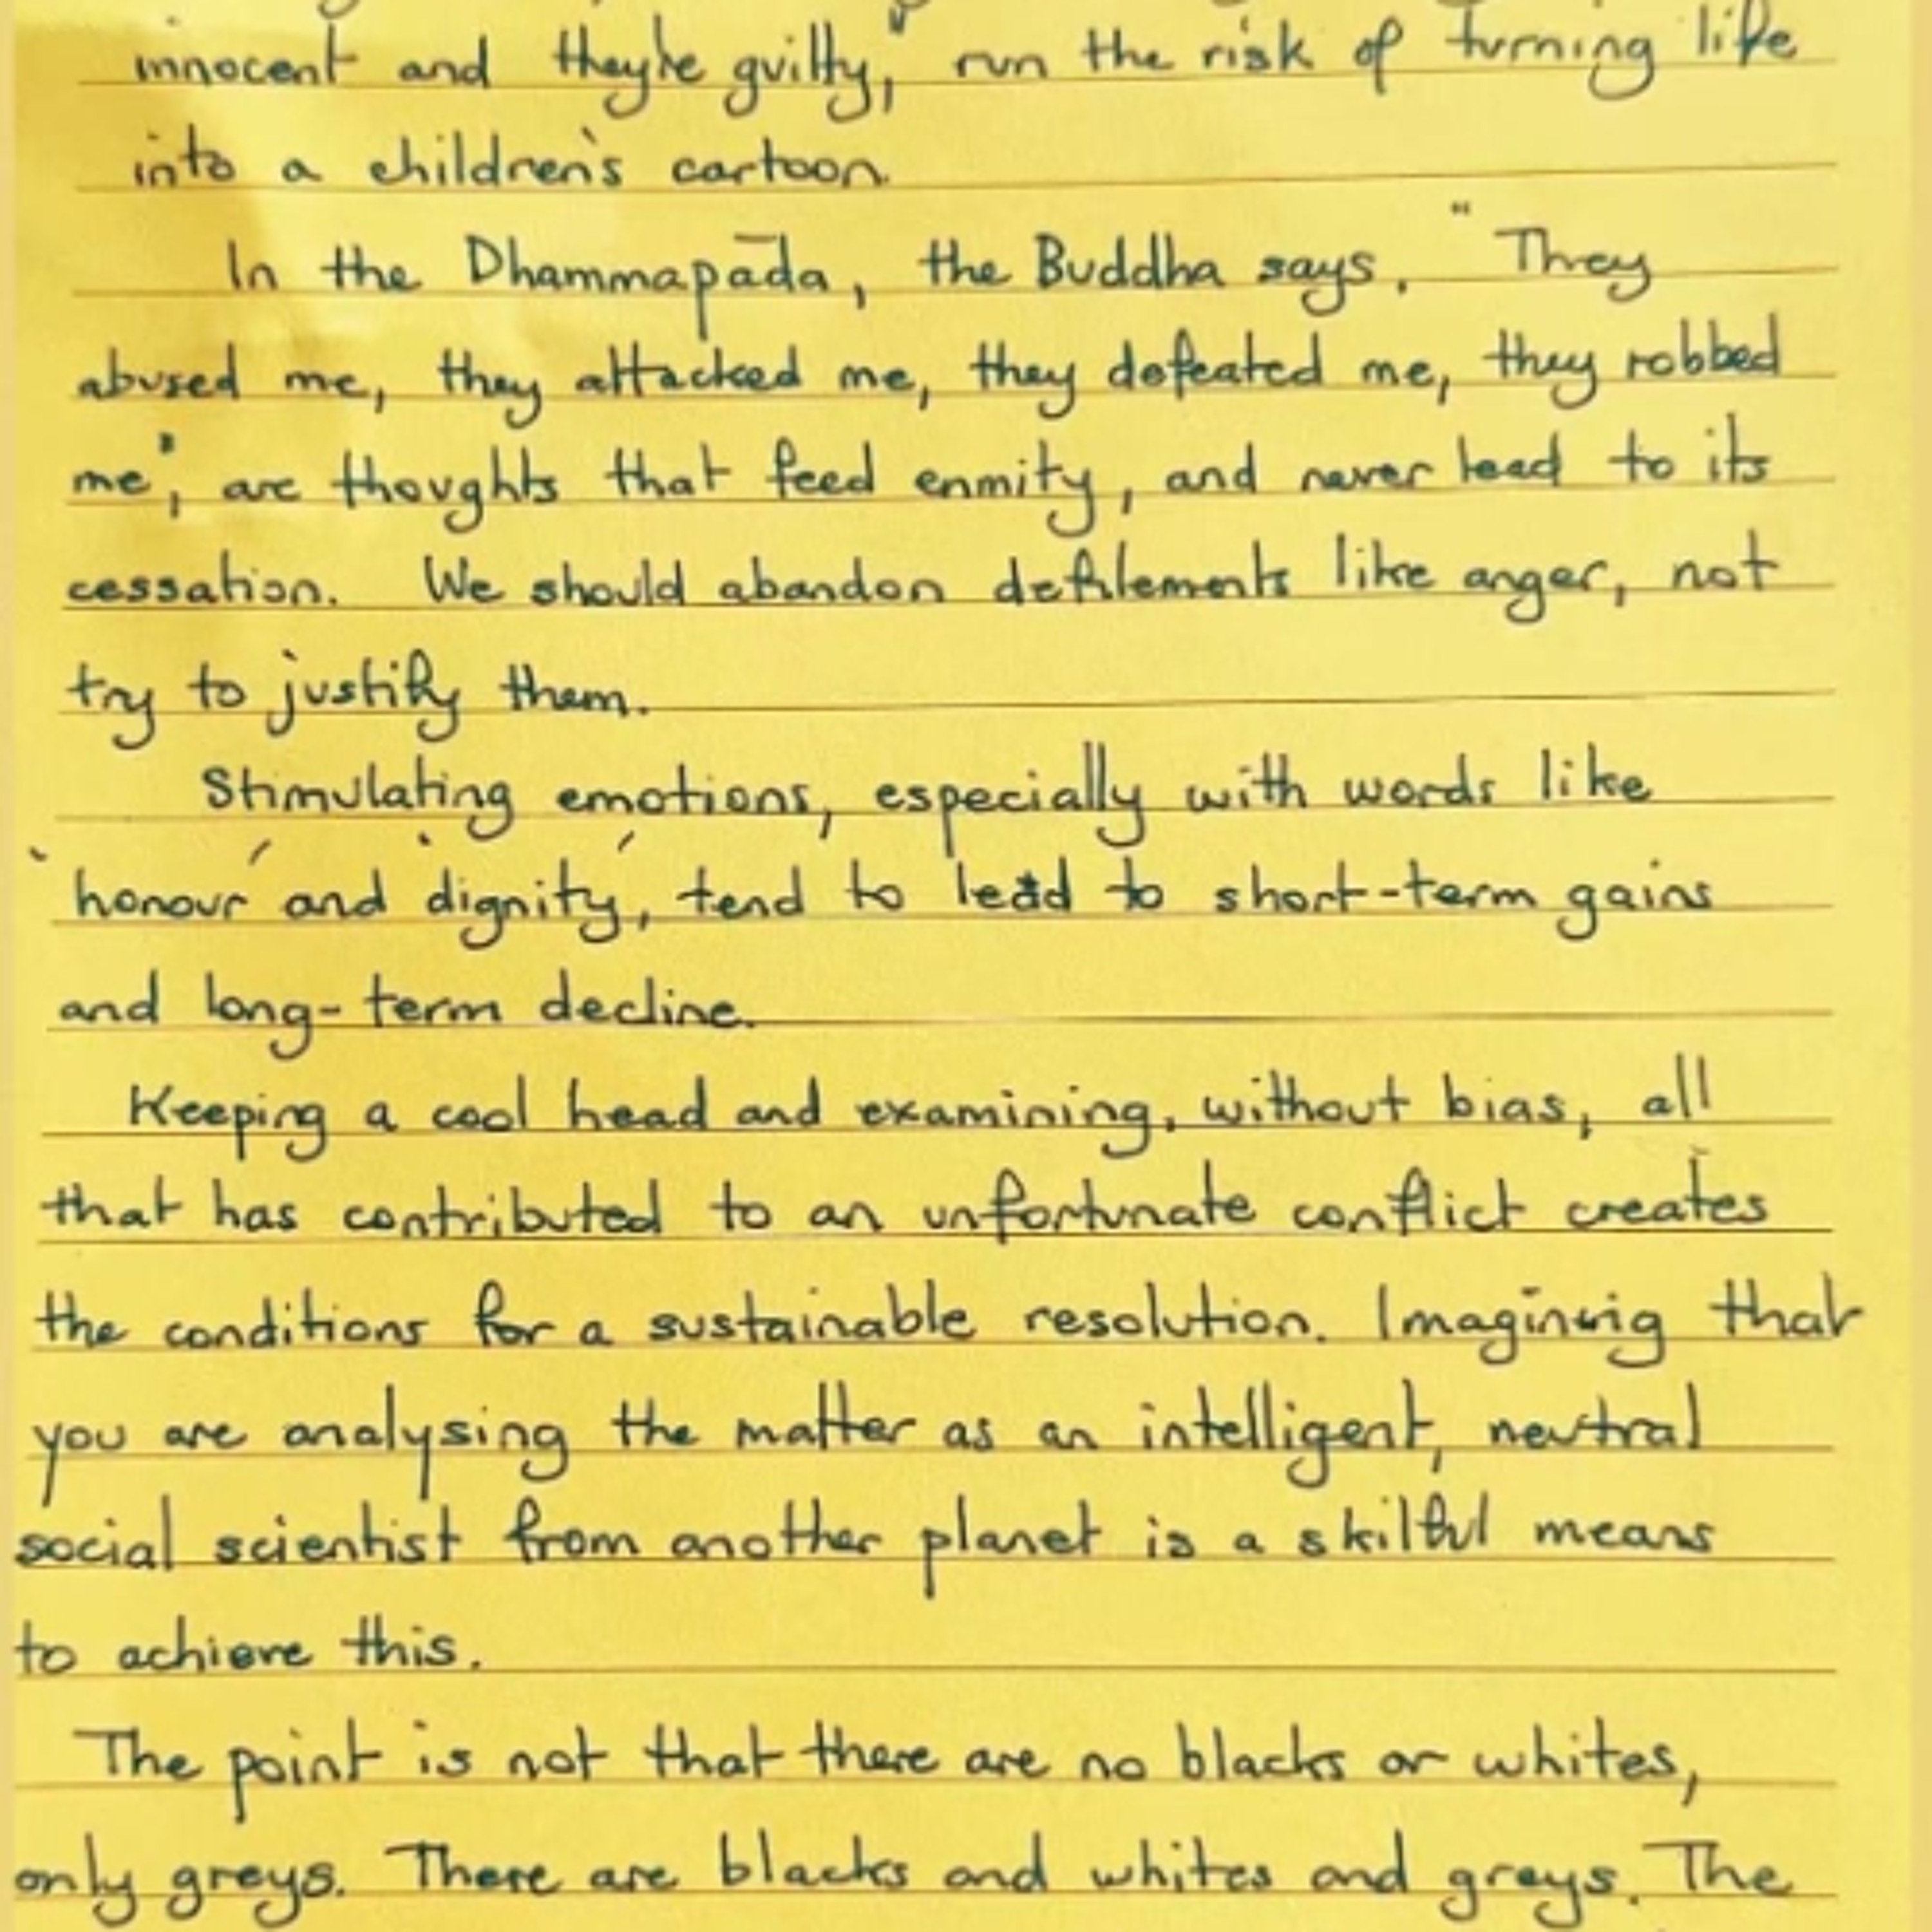 innocent and they're guilty," run the risk of turning life
into a children's cartoon.
In the Dhammapāda, the Buddha says, "They
abused me, they attacked me, they defeated me, they robbed
me", are thoughts that feed enmity, and never lead to its
cessation. We should abandon defilements like anger, not
try to justify them.
Stimulating emotions, especially with words like
'honour' and 'dignity', tend to lead to short-term gains
and long-term decline.
Keeping a cool head and examining, without bias, all
that has contributed to an unfortunate conflict creates
the conditions for a sustainable resolution. Imagining that
you are analysing the matter as an intelligent, neutral
social scientist from another planet is a skilful means
to achieve this.
The point is not that there are no blacks or whites,
only greys. There are blacks and whites and greys. The